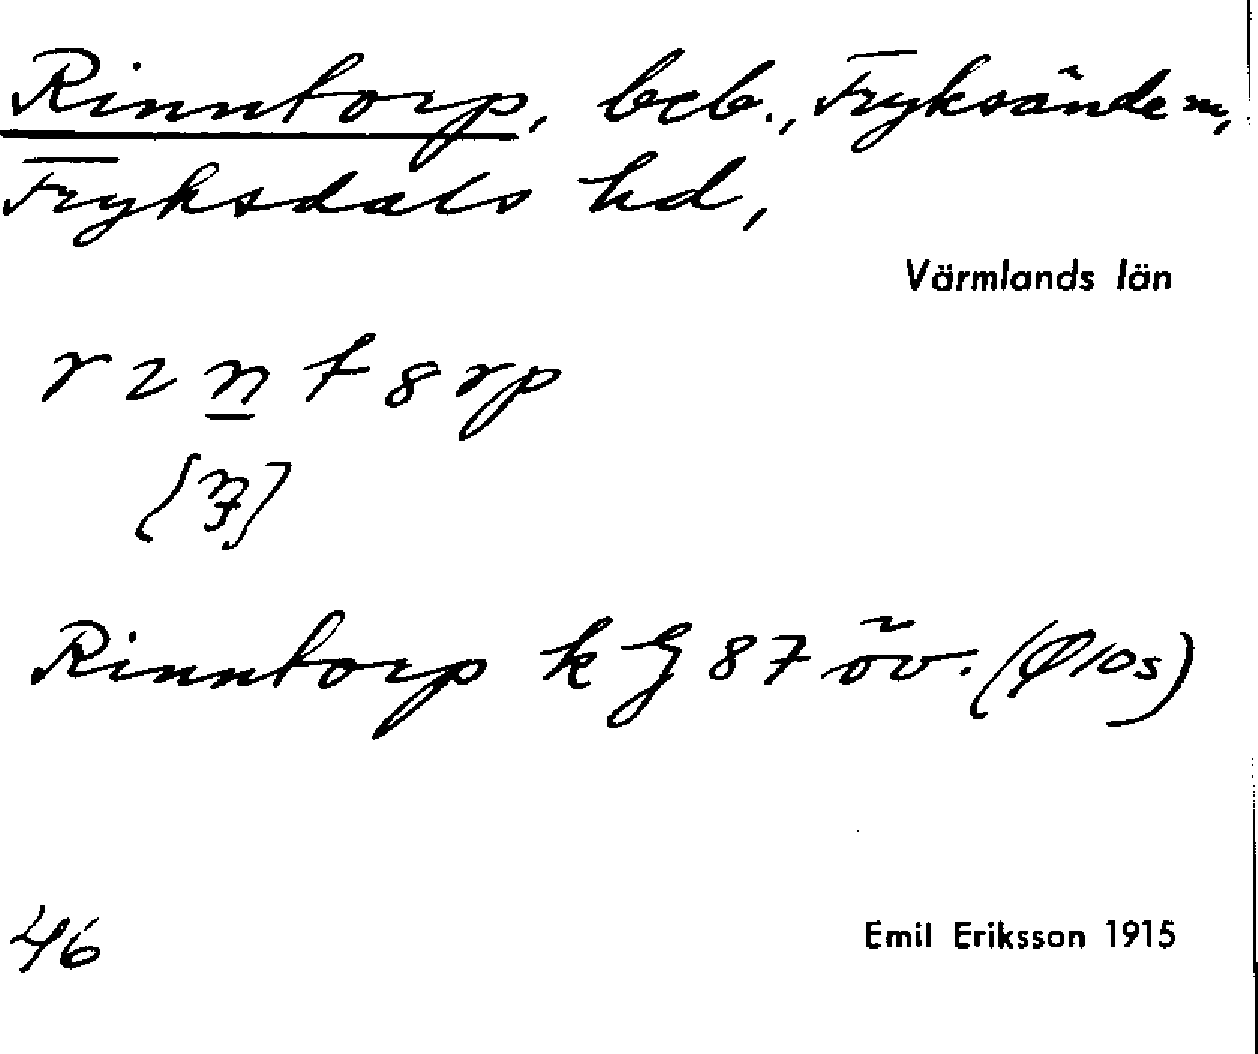 Rinntorp, beb., Fryksände sn,
Fryksdals hd,
Värmlands län
r ı n t 8 rp
Rinntorp k G 87 öv. (Ø10s)
46
Emil Eriksson 1915